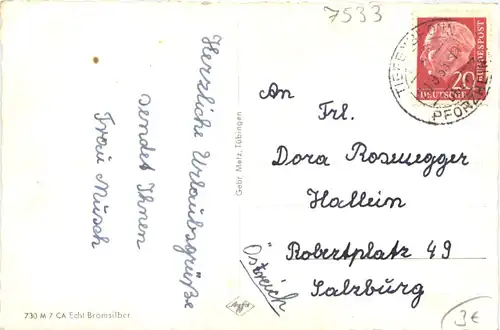 7533
Herzliche Urlaubsgrüße
sendet Ihnen
Frau Musch
Gebr. Metz, Tübingen
DEUTSCHE BUNDESPOST
20
PFORZHEIM
An
Frl.
Dora Rosenegger
Hallein
Robertplatz 49
Salzburg
Österreich
Agfa
730 M 7 CA Echt Bromsilber
3€